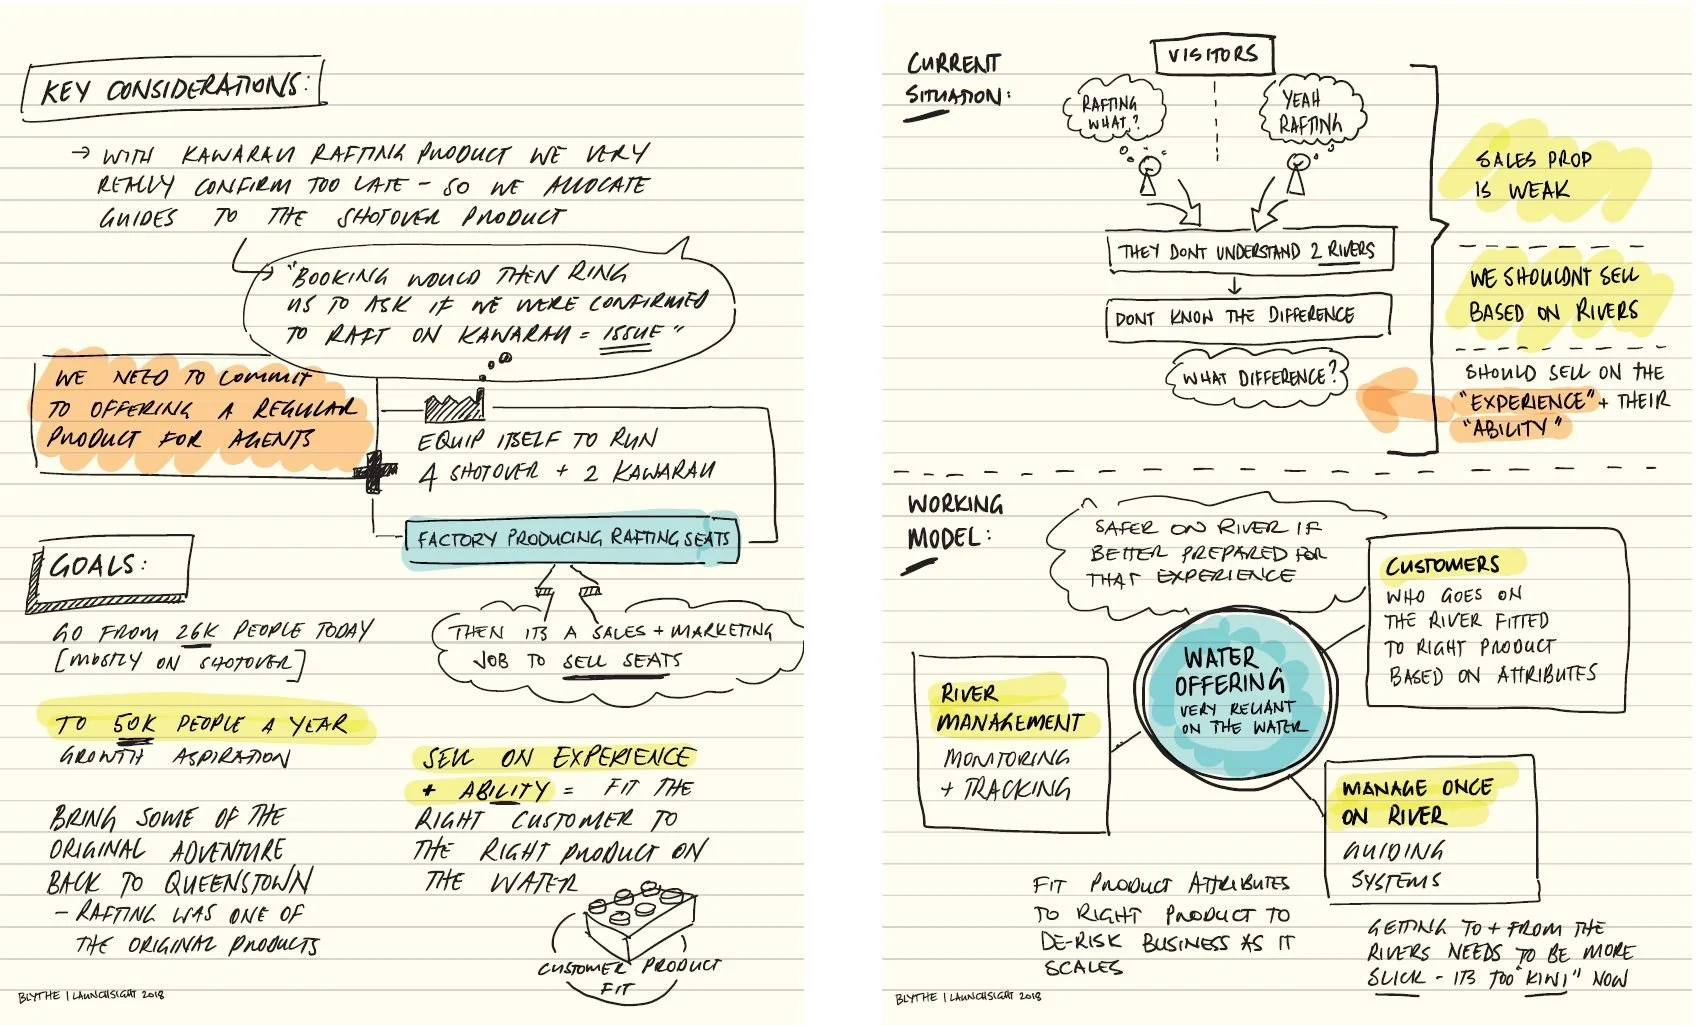 KEY CONSIDERATIONS:
→ WITH KAWARAU RAFTING PRODUCT WE VERY
REALLY CONFIRM TOO LATE - SO WE ALLOCATE
GUIDES TO THE SHOTOVER PRODUCT
"BOOKING WOULD THEN RING
US TO ASK IF WE WERE CONFIRMED
TO RAFT ON KAWARAU = ISSUE"
WE NEED TO COMMIT
TO OFFERING A REGULAR
PRODUCT FOR AGENTS
EQUIP ITSELF TO RUN
4 SHOTOVER + 2 KAWARAU
FACTORY PRODUCING RAFTING SEATS
THEN ITS A SALES + MARKETING
JOB TO SELL SEATS
GOALS:
GO FROM 26K PEOPLE TODAY
[MOSTLY ON SHOTOVER]
TO 50K PEOPLE A YEAR
GROWTH ASPIRATION
BRING SOME OF THE
ORIGINAL ADVENTURE
BACK TO QUEENSTOWN
- RAFTING WAS ONE OF
THE ORIGINAL PRODUCTS
SELL ON EXPERIENCE
+ ABILITY = FIT THE
RIGHT CUSTOMER TO
THE RIGHT PRODUCT ON
THE WATER
CUSTOMER PRODUCT
FIT
BLYTHE | LAUNCHSIGHT 2018
CURRENT
SITUATION:
VISITORS
RAFTING
WHAT?
YEAH
RAFTING
THEY DONT UNDERSTAND 2 RIVERS
DONT KNOW THE DIFFERENCE
WHAT DIFFERENCE?
SALES PROP
IS WEAK
WE SHOULDNT SELL
BASED ON RIVERS
SHOULD SELL ON THE
"EXPERIENCE" + THEIR
"ABILITY"
WORKING
MODEL:
SAFER ON RIVER IF
BETTER PREPARED FOR
THAT EXPERIENCE
CUSTOMERS
WHO GOES ON
THE RIVER FITTED
TO RIGHT PRODUCT
BASED ON ATTRIBUTES
WATER
OFFERING
VERY RELIANT
ON THE WATER
RIVER
MANAGEMENT
MONITORING
+ TRACKING
MANAGE ONCE
ON RIVER
GUIDING
SYSTEMS
FIT PRODUCT ATTRIBUTES
TO RIGHT PRODUCT TO
DE-RISK BUSINESS AS IT
SCALES
GETTING TO + FROM THE
RIVERS NEEDS TO BE MORE
SLICK - ITS TOO "KIWI" NOW
BLYTHE | LAUNCHSIGHT 2018